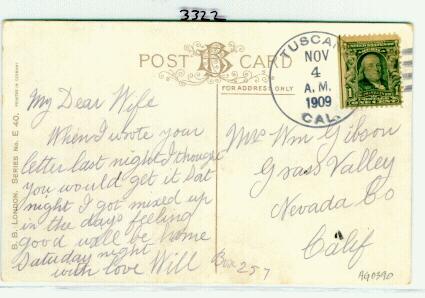 3322
POST B CARD
FOR ADDRESS ONLY
TUSCAN
NOV
4
A.M.
1909
CAL.
My Dear Wife
When I wrote your
letter last night I thought
you would get it Sat
night I got mixed up
in the days feeling
good will be home
Saturday night
with love Will
Mrs Wm Gibson
Grass Valley
Nevada Co
Calif
Box 257
AG0390
B. B. LONDON. SERIES No. E 40. PRINTED IN GERMANY